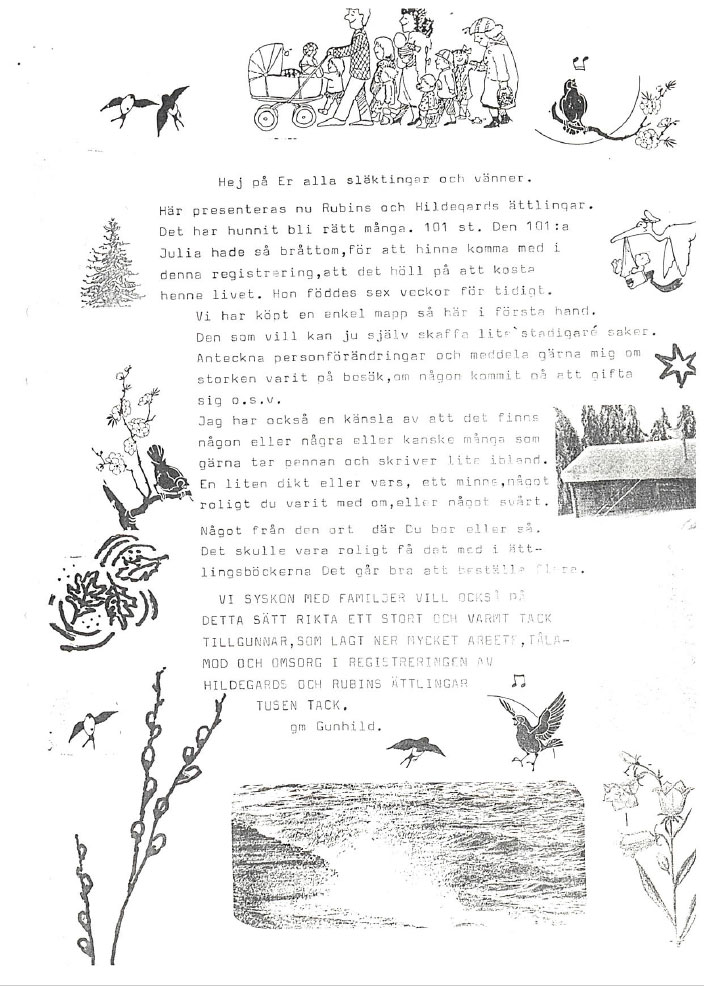 Hej på Er alla släktingar och vänner.
Här presenteras nu Rubins och Hildegards ättlingar.
Det har hunnit bli rätt många. 101 st. Den 101:a
Julia hade så bråttom,för att hinna komma med i
denna registrering,att det höll på att kosta
henne livet. Hon föddes sex veckor för tidigt.
Vi har köpt en enkel mapp så här i första hand.
Den som vill kan ju själv skaffa lite stadigaré saker.
Anteckna personförändringar och meddela gärna mig om
storken varit på besök,om någon kommit på att gifta
sig o.s.v.
Jag har också en känsla av att det finns
någon eller några eller kanske många som
gärna tar pennan och skriver lite ibland.
En liten dikt eller vers, ett minns,något
roligt du varit med om,eller något svårt.
Något från den ort där Du bor eller så.
Det skulle vara roligt få det med i ätt-
lingsböckerna Det går bra att beställa flera.
VI SYSKON MED FAMILJER VILL OCKSÅ PÅ
DETTA SÄTT RIKTA ETT STORT OCH VARMT TACK
TILLGUNNAR,SOM LAGT NER MYCKET ARBETE,TÅLA-
MOD OCH OMSORG I REGISTRERINGEN AV
HILDEGARDS OCH RUBINS ÄTTLINGAR
TUSEN TACK.
gm Gunhild.